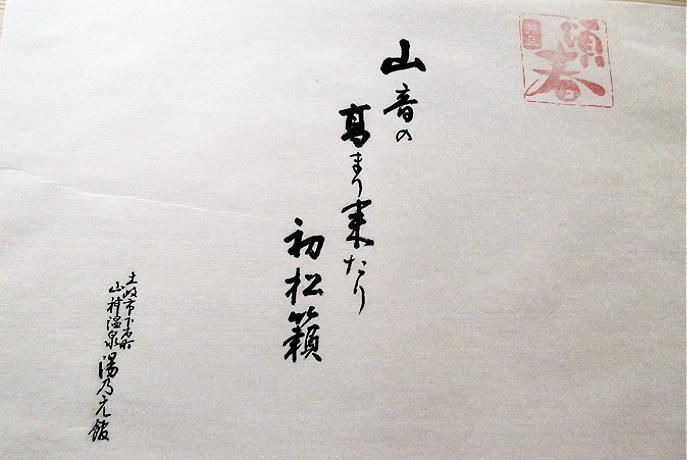 頌春
山音の
高まり来たり
初松籟
土岐市下石
山神温泉 湯乃元館